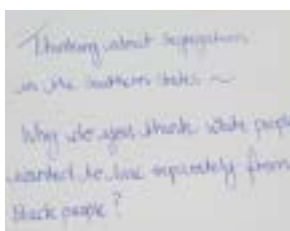 Thinking about Segregation
in the southern states ~
Why do you think white people
wanted to live separately from
Black people?